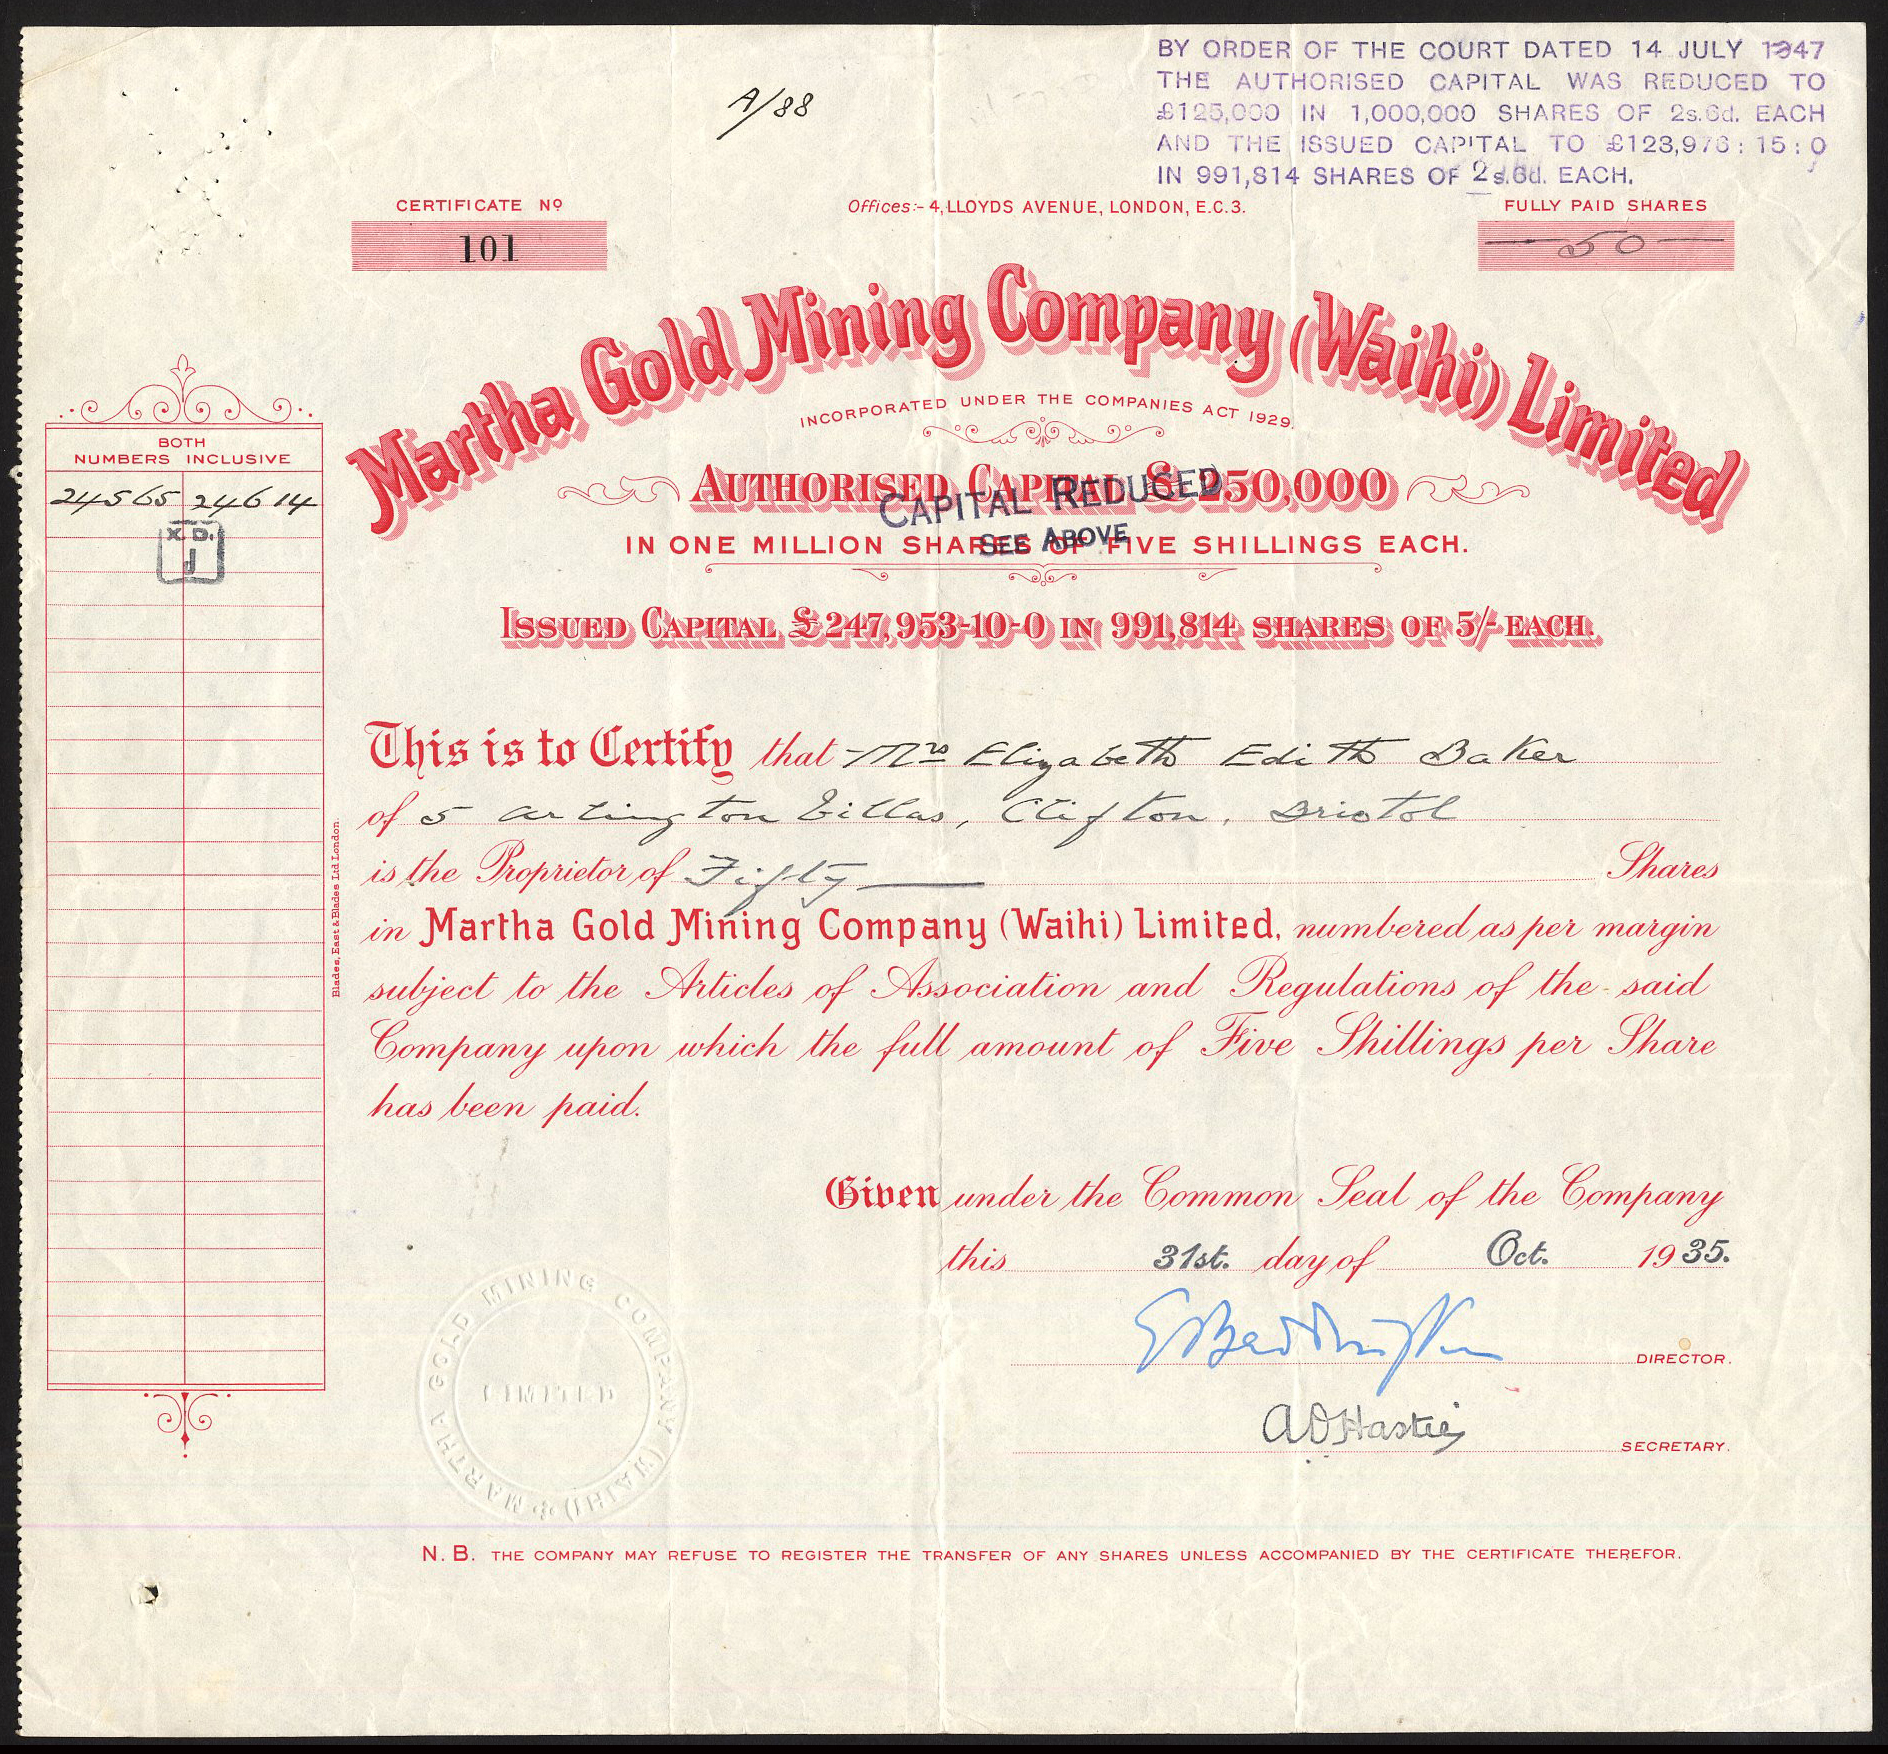 BY ORDER OF THE COURT DATED 14 JULY 1947
THE AUTHORISED CAPITAL WAS REDUCED TO
£125,000 IN 1,000,000 SHARES OF 2s.6d. EACH
AND THE ISSUED CAPITAL TO £123,976:15:0
IN 991,814 SHARES OF 2s.6d. EACH.
A/88
CERTIFICATE No
101
Offices:- 4, LLOYDS AVENUE, LONDON, E.C.3.
FULLY PAID SHARES
50
Martha Gold Mining Company (Waihi) Limited
INCORPORATED UNDER THE COMPANIES ACT 1929.
AUTHORISED CAPITAL £250,000
CAPITAL REDUCED
SEE ABOVE
IN ONE MILLION SHARES OF FIVE SHILLINGS EACH.
ISSUED CAPITAL £247,953-10-0 IN 991,814 SHARES OF 5/- EACH.
BOTH
NUMBERS INCLUSIVE
24565 24614
X.D.
J
This is to Certify that Mrs Elizabeth Edith Baker
of 5 Arlington Villas, Clifton, Bristol
is the Proprietor of Fifty Shares
in Martha Gold Mining Company (Waihi) Limited, numbered as per margin
subject to the Articles of Association and Regulations of the said
Company upon which the full amount of Five Shillings per Share
has been paid.
Blades, East & Blades Ltd London.
Given under the Common Seal of the Company
this 31st. day of Oct. 1935.
DIRECTOR.
A D Hastie
SECRETARY.
MARTHA GOLD MINING COMPANY (WAIHI)
LIMITED
N.B. THE COMPANY MAY REFUSE TO REGISTER THE TRANSFER OF ANY SHARES UNLESS ACCOMPANIED BY THE CERTIFICATE THEREFOR.